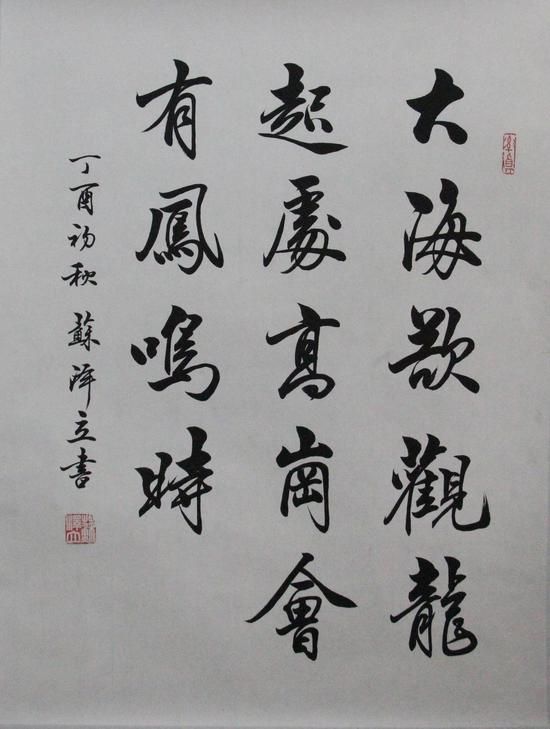 大海欲觀龍
起處高崗會
有鳳鳴時
丁酉初秋 蘇澤立書